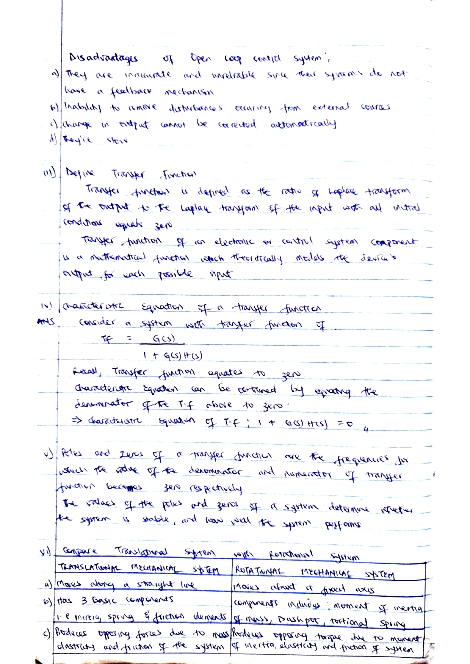 Disadvantages of Open loop control system;
a) They are inaccurate and unreliable since their systems do not
have a feedback mechanism
b) Inability to remove disturbances occuring from external sources
c) change in output cannot be corrected automatically
d) They're slow
iii) Define Transfer Function
Transfer function is defined as the ratio of Laplace transform
of the output to the Laplace transform of the input with all initial
conditions equals zero
Transfer function of an electronic or control system component
is a mathematical function which theoretically models the device's
output for each possible input
iv) Characteristic Equation of a transfer function
ANS Consider a system with transfer function of
TF = G(s)
1 + G(s)H(s)
Recall, Transfer function equates to zero
Characteristic Equation can be obtained by equating the
denominator of the T.f above to zero
⇒ characteristic equation of T.f ; 1 + G(s) H(s) = 0
v) Poles and Zeros of a transfer function are the frequencies for
which the value of the denominator and numerator of transfer
function becomes zero respectively
The values of the poles and zeros of a system determine whether
the system is stable, and how well the system performs
vi) Compare Translational System with Rotational System
TRANSLATIONAL MECHANICAL SYSTEM ROTATIONAL MECHANICAL SYSTEM
a) Moves along a straight line Moves about a fixed axis
b) Has 3 basic components components includes, moment of inertia
i.e inertia, spring & friction elements of mass, dashpot, torsional spring
c) Produces opposing forces due to mass Produces opposing torque due to moment
elasticity and friction of the system of inertia, elasticity and friction of system